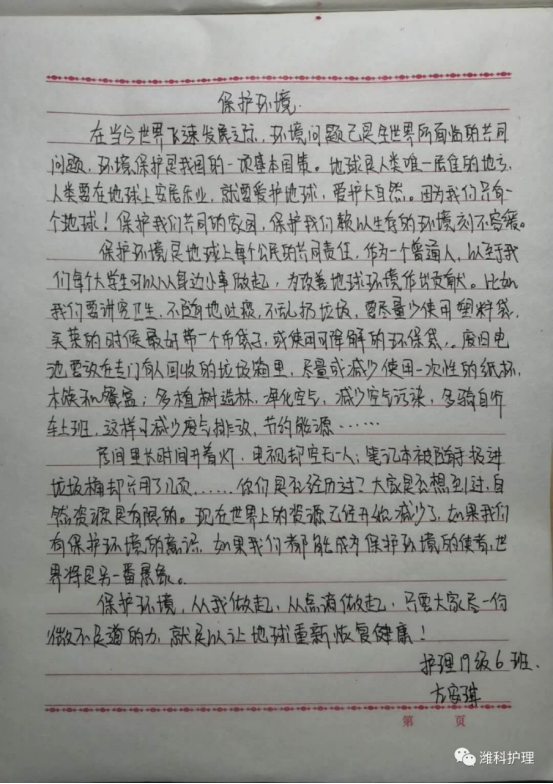 保护环境.
在当今世界飞速发展之际，环境问题已是全世界所面临的共同
问题，环境保护是我国的一项基本国策。地球是人类唯一居住的地方，
人类要在地球上安居乐业，就要爱护地球，爱护大自然。因为我们只有一
个地球！保护我们共同的家园，保护我们赖以生存的环境刻不容缓。
保护环境是地球上每个公民的共同责任，作为一个普通人，以至于我
们每个大学生可以从身边小事做起，为改善地球环境作出贡献。比如
我们要讲究卫生，不随地吐痰，不乱扔垃圾，要尽量少使用塑料袋，
买菜的时候最好带一个布袋子，或使用可降解的环保袋，。废旧电
池要放在专门有人回收的垃圾箱里，尽量或减少使用一次性的纸杯，
木筷和餐盒；多植树造林，净化空气，减少空气污染，多骑自行
车上班，这样可减少废气排放，节约能源……
房间里长时间开着灯，电视却空无一人；笔记本被随手投进
垃圾桶却只用了几页……你们是否经历过？大家是否想到过，自
然资源是有限的。现在世界上的资源已经开始减少了，如果我们
有保护环境的意识，如果我们都能成为保护环境的使者，世
界将是另一番景象。
保护环境，从我做起，从点滴做起，只要大家尽一份
微不足道的力，就足以让地球重新恢复健康！
护理19级6班.
左安琪
第 页
潍科护理